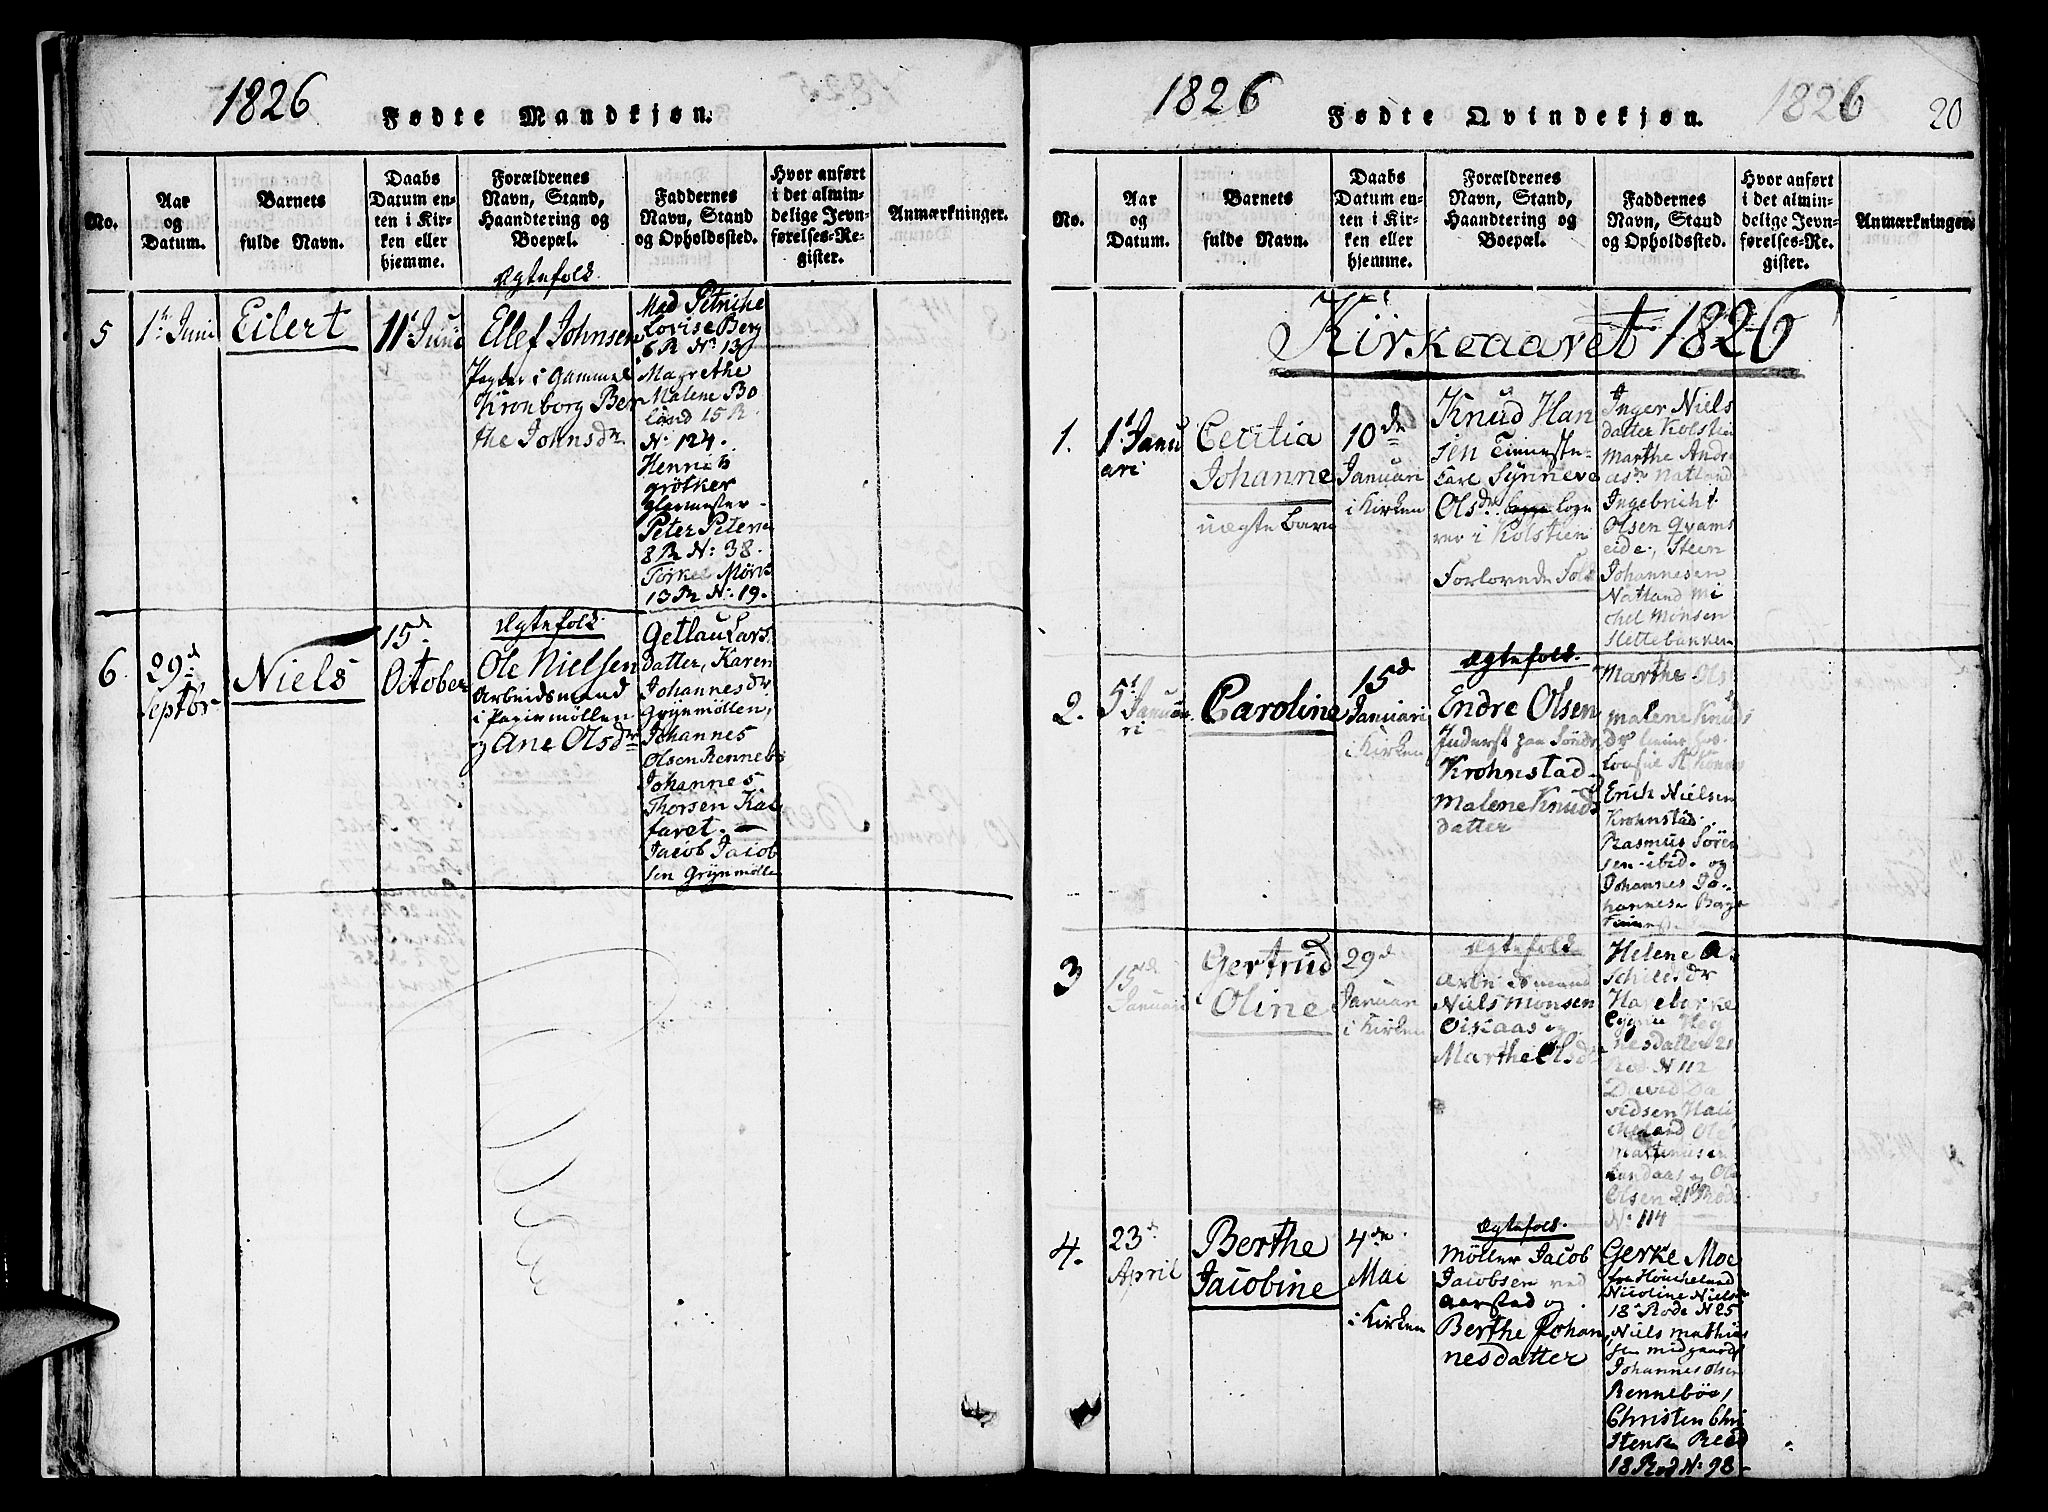 1826
Fødte Mandkjøn.
No.
Aar
og
Datum.
Barnets
fulde Navn.
Daabs
Datum en-
ten i Kir-
ken eller
hjemme.
Forældrenes
Navn, Stand,
Haandtering og
Boepæl.
Faddernes
Navn, Stand
og Opholdssted.
Hvor anført
i det almin-
delige Jevn-
førelses-Re-
gister.
Anmærkninger.
5
1t Juni
Eilert
11 Juni
Ægtefolk
Ellef Johnsen
i Gammel
Kronborg Ber
the Johnsdr
Mad Petriche
Lovise Berg
6 R No 13
Magrethe
Malene Bo
land 15 R.
No: 124.
Henrich
grötker
Glarmester
Peter Petersen
8 R N: 38.
Torkel Möns
13 R N: 19.
6
29d
Septbr
Niels
15d
October
Ægtefolk
Ole Nielsen
Arbeidsmand
i Papirmöllen
og Ane Olsdr
Getlau Lars
datter, Karen
Johannesdr
Grynmöllen,
Johannes
Olsen Rennebö
Johannes
Thorsen Kal
faret.
Jacob Jacob
sen Grynmölle
1826
Fødte Qvindekjøn.
1826
20
No.
Aar
og
Datum.
Barnets
fulde Navn.
Daabs
Datum en-
ten i Kir-
ken eller
hjemme.
Forældrenes
Navn, Stand,
Haandtering og
Boepæl.
Faddernes
Navn, Stand
og Opholdssted.
Hvor anført
i det almin-
delige Jevn-
førelses-Re-
gister.
Anmærkninger.
Kirkeaaret 1826
1.
1t Janu
ari
Cecilia
Johanne
uægte Barn
10de
Januari
i Kirken
Knud Han
sen Tieneste-
Karl Synneve
Olsdr Loge
rer i Kolstien
Forlovede Folk
Inger Niels
datter Kolstien
Marthe Andr
asdr Natland
Ingebricht
Olsen Qvams
eide, Steen
Johannesen
Natland Mi
chel Monsen
Slettebakken
2.
5t Janua
ri
Caroline
15d
Januari
i Kirken
Ægtefolk.
Endre Olsen
Inderst paa Söndr
Krohnstad
Malene Knuds
datter
Marthe Ols
Malene Knuds
dr
Erich Nielsen
Krohnstad.
Rasmus Sören
sen ibid. og
Johannes Jo-
hannesen
3
15d
Januari
Gertrud
Oline
29d
Januari
i Kirken
Ægtefolk
Arbeidsmand
Niels Monsen
og
Marthe Olsdr
Helene A-
schilsdr
nesdatter 21
Rod N 112
David Da
vidsen Hau
cheland Ole
Martinusen
Landaas og Ole
Olsen 21 Rode
N. 114
4.
23d
April
Berthe
Jacobine
4de
Mai
i Kirken
Ægtefolk.
Möller Jacob
Jacobsen ved
Aarstad og
Berthe Johan
nesdatter
Gerke Moe
fra Houcheland
Nicoline Niels
18 Rode N 25
Niels Mathias
sen Midgaard
Johannes Olsen
Rennebö
Christen Chri
stensen
18 Rod N: 98